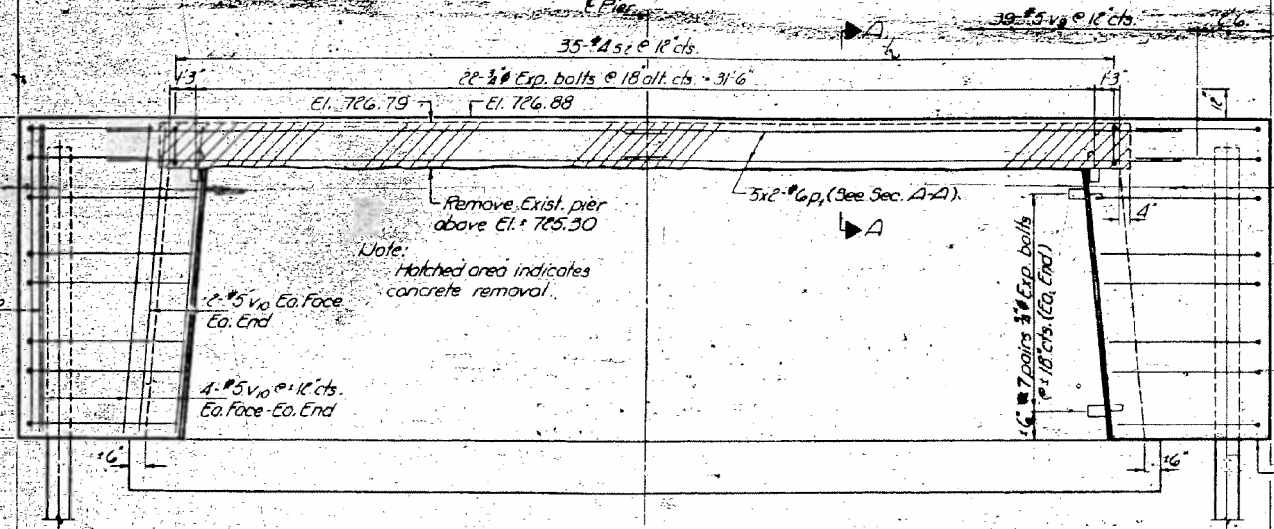 ℄ Pier
39-#5 v9 @ 12" cts.
A
35-#4 s2 @ 12" cts.
1'-3"
22-¾"ϕ Exp. bolts @ 18" alt. cts. = 31'-6"
1'-3"
12"
El. 726.79
El. 726.88
Remove Exist. pier
above El.± 725.30
5x2-#6 p1 (See Sec. A-A).
A
4"
Note:
Hatched area indicates
concrete removal.
2-#5 v10 Ea. Face
Ea. End
4-#5 v10 @ ±12" cts.
Ea. Face-Ea. End
7 pairs ¾"ϕ Exp. bolts
@ ± 18" cts. (Ea. End)
±6"
±6"
±6"